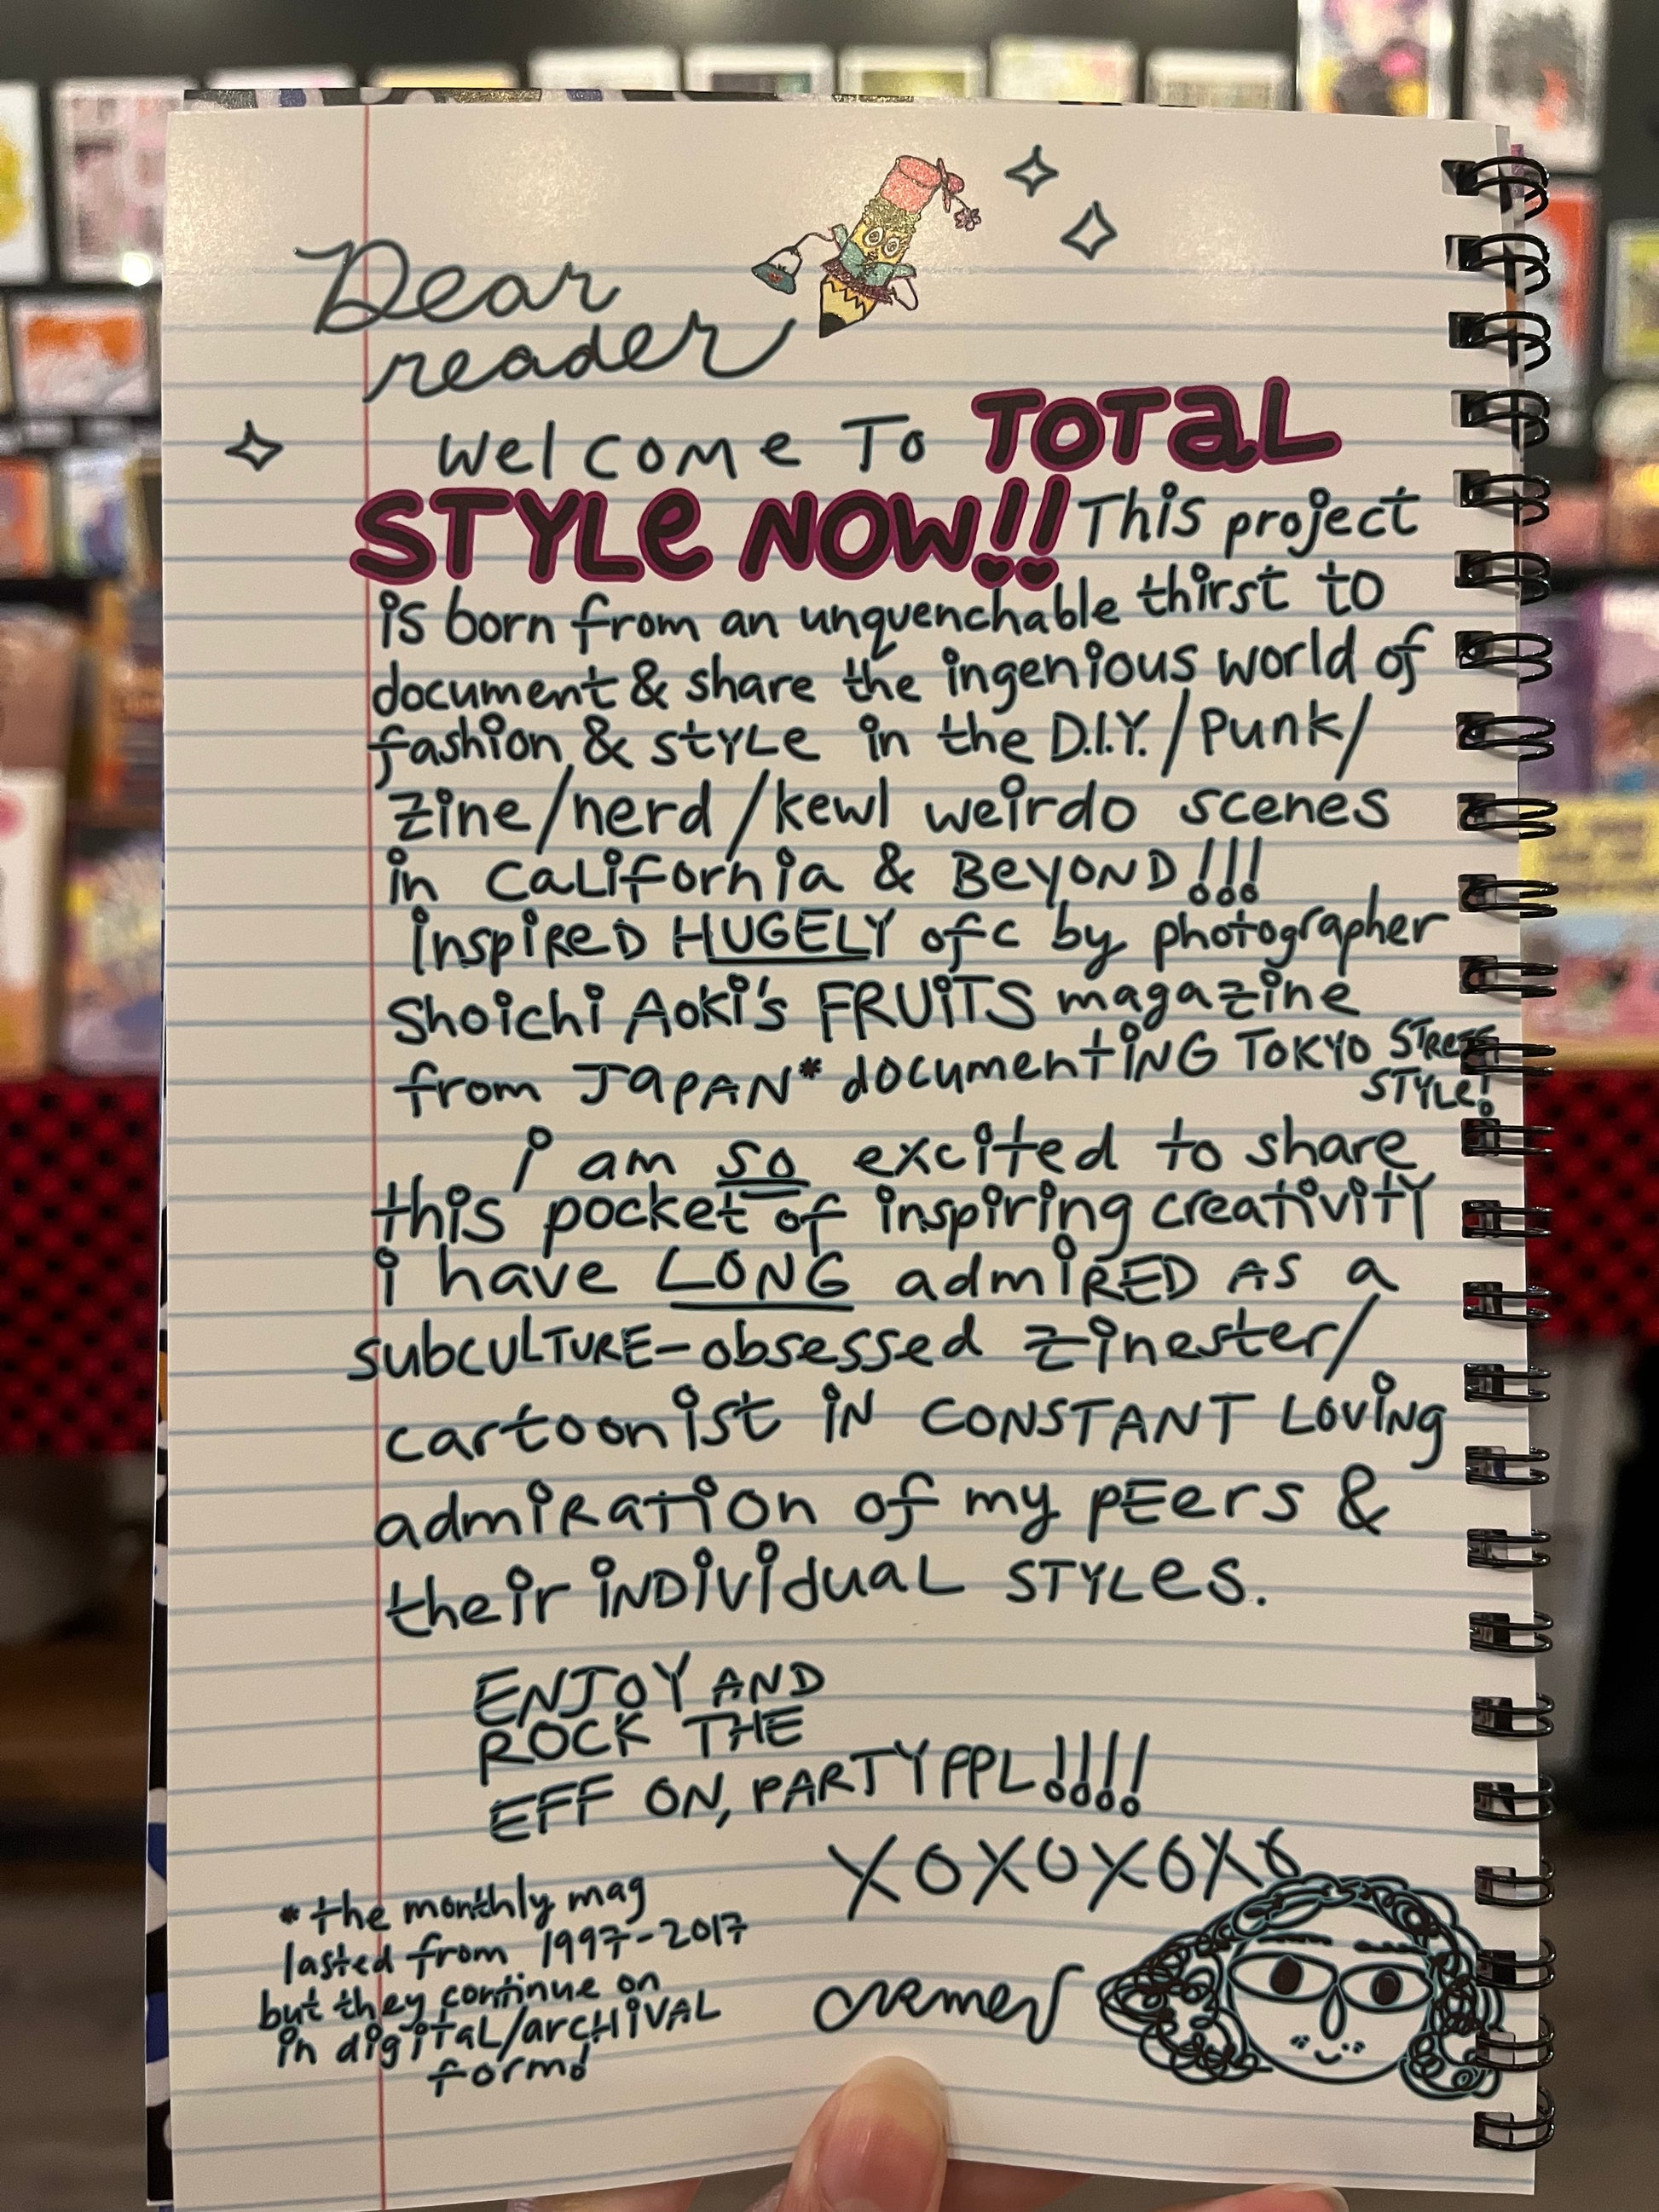 Dear
reader
Welcome To TOTAL
STYLE NOW!! This project
is born from an unquenchable thirst to
document & share the ingenious world of
fashion & STYLE in the D.I.Y. / Punk/
zine/nerd/kewl weirdo scenes
in California & BEYOND!!!
inspired HUGELY ofc by photographer
Shoichi Aoki's FRUiTS magazine
from JAPAN* documenting TOKYO STREET
STYLE!
i am so excited to share
this pocket of inspiring creativity
i have LONG admired as a
subculture-obsessed zinester/
cartoonist in CONSTANT Loving
admiration of my peers &
their individual STYLES.
ENJOY AND
ROCK THE
EFF ON, PARTY PPL!!!!
XOXOXOXO
*the monthly mag
lasted from 1997-2017
but they continue on
in digital/archival
form!